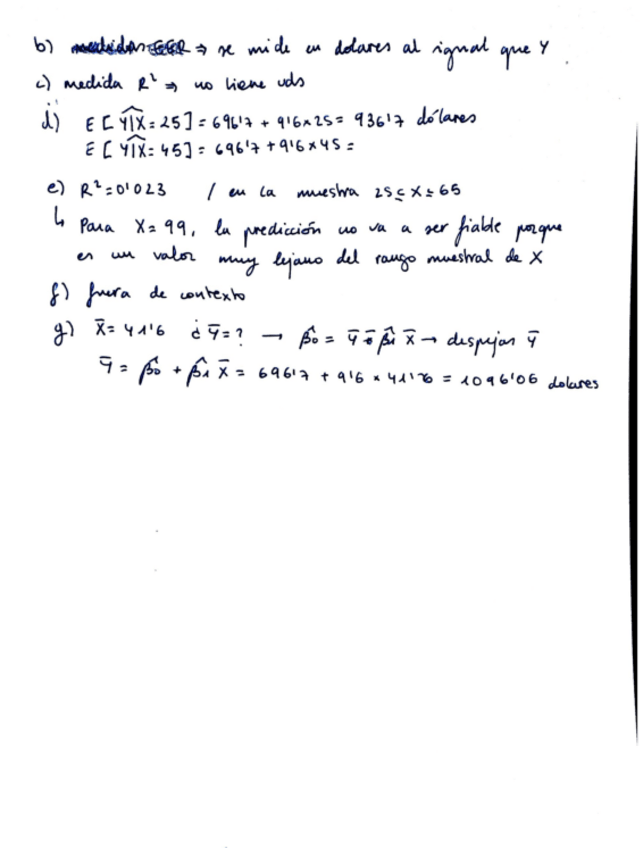 b) medidas EER ⇒ se mide en dolares al igual que Y.
c) medida R² ⇒ no tiene uds
d) E[Y|X̂=25] = 696'7 + 9'6×25 = 936'7 dólares
E[Y|X̂=45] = 696'7 + 9'6×45 =
e) R²=0'023 / en la muestra 25≤X≤65
↳ Para X=99, la predicción no va a ser fiable porque
es un valor muy lejano del rango muestral de X
f) fuera de contexto
g) X̄=41'6 ¿Ȳ=? → β̂₀ = Ȳ - β̂₁ X̄ → despejar Ȳ
Ȳ = β̂₀ + β̂₁ X̄ = 696'7 + 9'6 × 41'6 = 1096'06 dolares